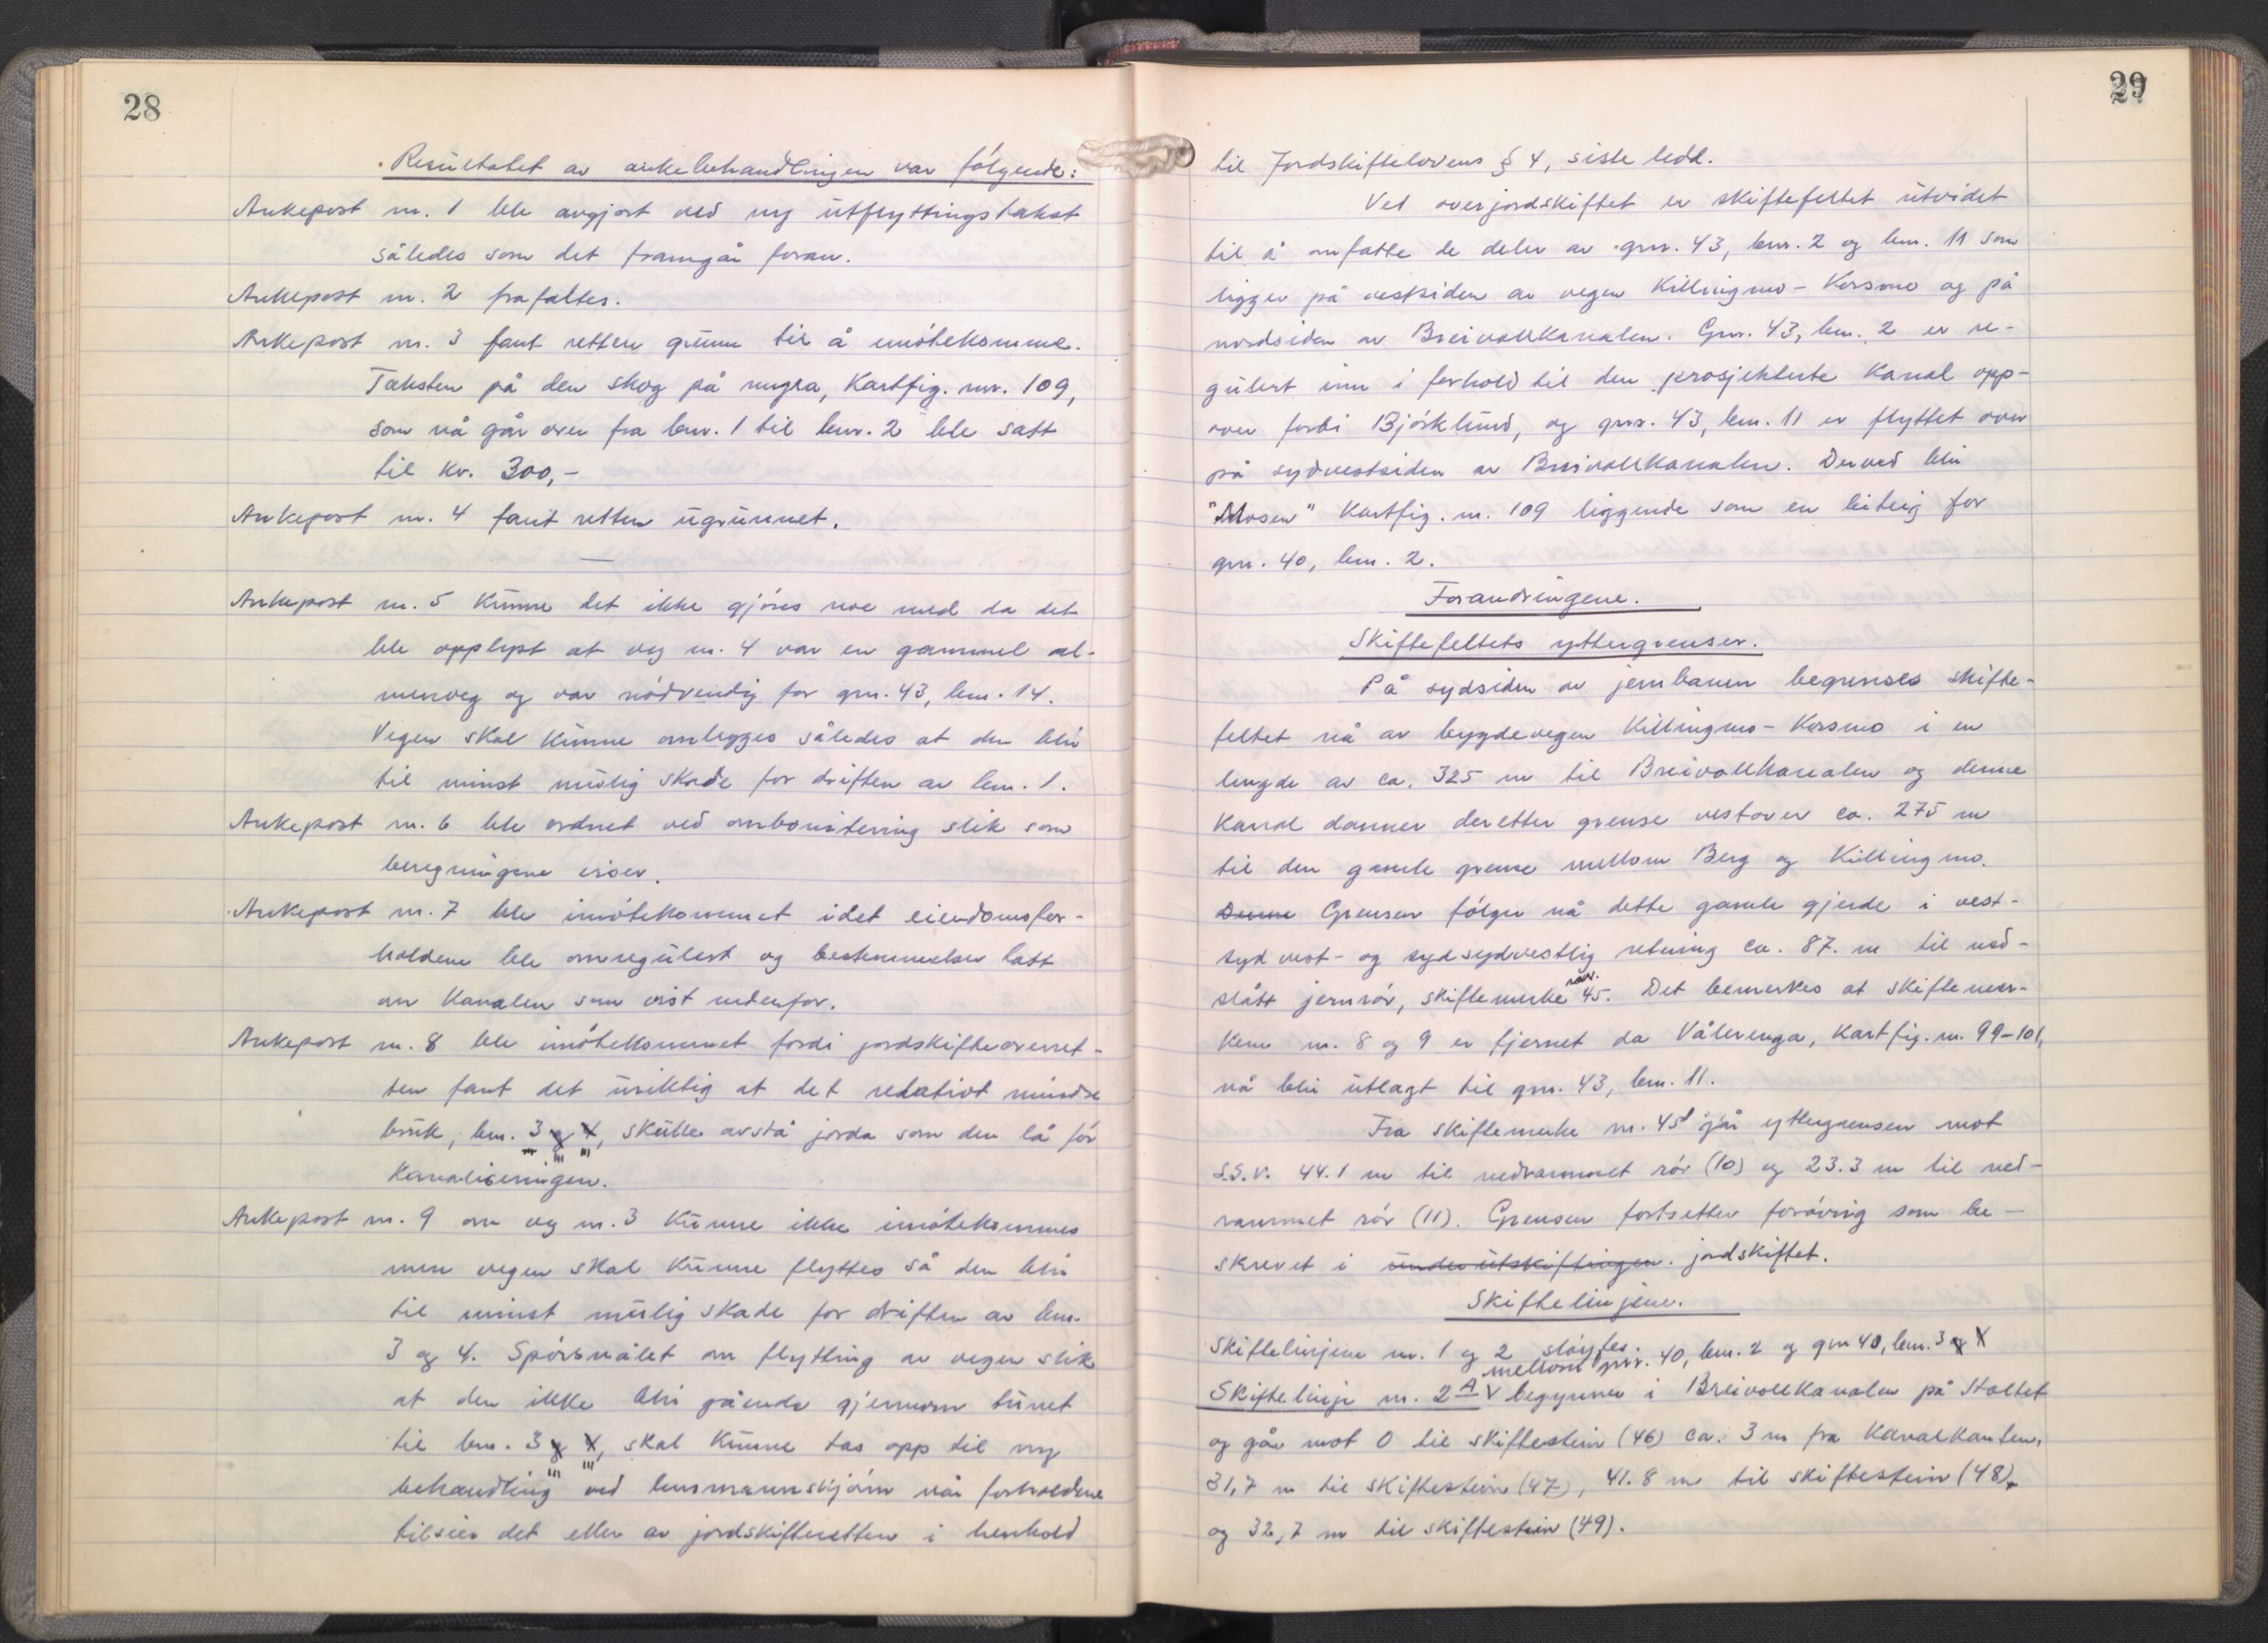 28
Resultatet av ankebehandlingen var følgende:
Ankepost nr. 1 ble avgjort ved ny utflyttingstakst
således som det framgår foran.
Ankepost nr. 2 frafaltes.
Ankepost nr. 3 fant retten grunn til å imøtekomme.
Taksten på den skog på mugra, Kartfig. nr. 109,
som nå går over fra bnr. 1 til bnr. 2 ble satt
til kr. 300,-
Ankepost nr. 4 fant retten ugrunnet.
Ankepost nr. 5 kunne det ikke gjøres noe med da det
ble opplyst at veg nr. 4 var en gammel al-
menveg og var nødvendig for gnr. 43, bnr. 14.
Vegen skal kunne omlegges således at den blir
til minst mulig skade for driften av bnr. 1.
Ankepost nr. 6 ble ordnet ved ombonitering slik som
beregningene viser.
Ankepost nr. 7 ble imøtekommet idet eiendomsfor-
holdene ble omregulert og bestemmelser tatt
om Kanalen som vist nedenfor.
Ankepost nr. 8 ble imøtekommet fordi jordskifteoverret-
ten fant det uriktig at det relativt mindre
bruk, bnr. 3 og 4, skulle avstå jorda som den lå før
Kanaliseringen.
Ankepost nr. 9 om veg nr. 3 kunne ikke imøtekommes
men vegen skal kunne flyttes så den blir
til minst mulig skade for driften av bnr.
3 og 4. Spørsmålet om flytting av vegen slik
at den ikke blir gående gjennom tunet
til bnr. 3 og 4, skal kunne tas opp til ny
behandling ved lensmannsskjønn når forholdene
tilsier det eller av jordskifteretten i henhold
29
til Jordskiftelovens § 4, siste ledd.
Ved overjordskiftet er skiftefeltet utvidet
til å omfatte de deler av gnr. 43, bnr. 2 og bnr. 11 som
ligger på vestsiden av vegen Killingmo - Korsmo og på
nordsiden av Breivollkanalen. Gnr. 43, bnr. 2 er re-
gulert inn i forhold til den prosjekterte Kanal opp-
over forbi Bjørklund, og gnr. 43, bnr. 11 er flyttet over
på sydvestsiden av Breivollkanalen. Derved blir
"Mosen" Kartfig. nr. 109 liggende som en teig for
gnr. 40, bnr. 2.
Forandringene.
Skiftefeltets yttergrenser.
På sydsiden av jernbanen begrenses skifte-
feltet nå av bygdevegen Killingmo - Korsmo i en
lengde av ca. 325 m til Breivollkanalen og denne
Kanal danner deretter grense vestover ca. 275 m
til den gamle grense mellom Berg og Killingmo.
Denne Grensen følger nå dette gamle gjerde i vest-
syd vest- og syd sydvestlig retning ca. 87. m til ned-
slått jernrør, skiftemerke nr. 45. Det bemerkes at skiftemer-
kene nr. 8 og 9 er fjernet da Vålerenga, Kartfig. nr. 99-101,
nå blir utlagt til gnr. 43, bnr. 11.
Fra skiftemerke nr. 45 går yttergrensen mot
S.S.V. 44.1 m til nedrammet rør (10) og 23.3 m til ned-
rammet rør (11). Grensen fortsetter forøvrig som be-
skrevet i underutskiftingen. jordskiftet.
Skiftelinjene.
Skiftelinjene nr. 1 og 2 sløyfes.
mellom gnr. 40, bnr. 2 og gnr 40, bnr. 3 og 4
Skiftelinje nr. 2 A V begynner i Breivollkanalen på Stoltet
og går mot O til skiftestein (46) ca. 3 m fra Kanalkanten,
31,7 m til skiftestein (47), 41.8 m til skiftestein (48),
og 32,7 m til skiftestein (49).